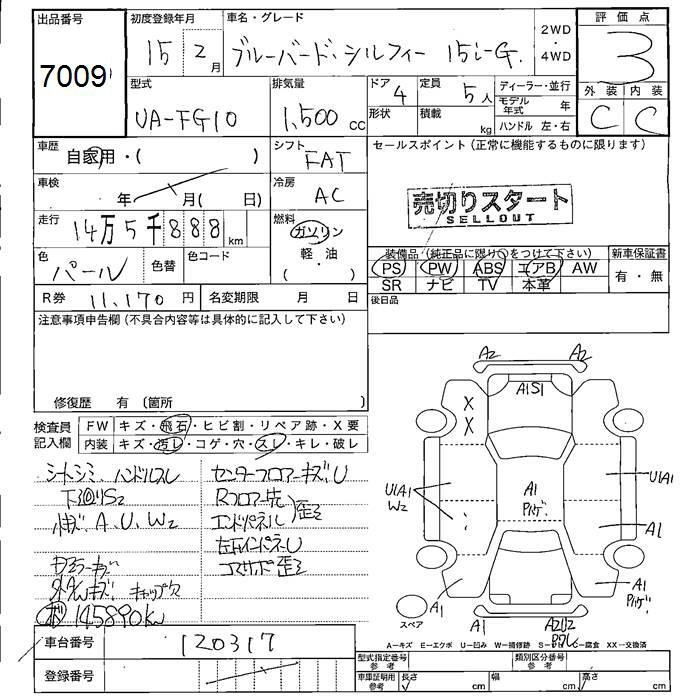 出品番号 初度登録年月 車名・グレード 2WD 評価点
7009 15 2月 ブルーバード・シルフィー 15i-G. 4WD 3
型式 排気量 ドア 4 定員 5人 ディーラー・並行 外装 内装
UA-FG10 1,500 cc 形状 積載 kg モデル年式 年 C C
ハンドル 左・右
車歴 自家用・( ) シフト FAT セールスポイント (正常に機能するものに限ります)
車検 年 月( 日) 冷房 AC 売切りスタート
SELLOUT
走行 14万5千888km 燃料 ガソリン
軽・油
( )
色 パール 色替 色コード 装備品・(純正品に限り○をつけて下さい) 新車保証書
PS PW ABS エアB AW 有・無
SR ナビ TV 本革
R券 11,170円 名変期限 月 日 後日品
注意事項申告欄 (不具合内容等は具体的に記入して下さい)
修復歴 有 (箇所 )
検査員 FW キズ・飛石・ヒビ割・リペア跡・X要
記入欄 内装 キズ・汚レ・コゲ・穴・スレ・キレ・破レ
シートシミ、ハンドルスレ センターフロアーキズ、U
下廻りS2 Rフロアー先
小キズ、A、U、W2 エンドパネル 歪ミ
左右インパネU
コアサポ歪ミ
キャップ欠
145890km
A2 A2
A1S1
X
X
U1A1
W2
A1
U1A1
A1
A1
A1
スペア A1
A=キズ E=エクボ U=凹み W=補修跡 C=腐食 XX=交換済
車台番号 120317
登録番号
型式指定番号 参考 類別区分番号 参考
車庫証明用 参考 長さ cm 幅 cm 高さ cm